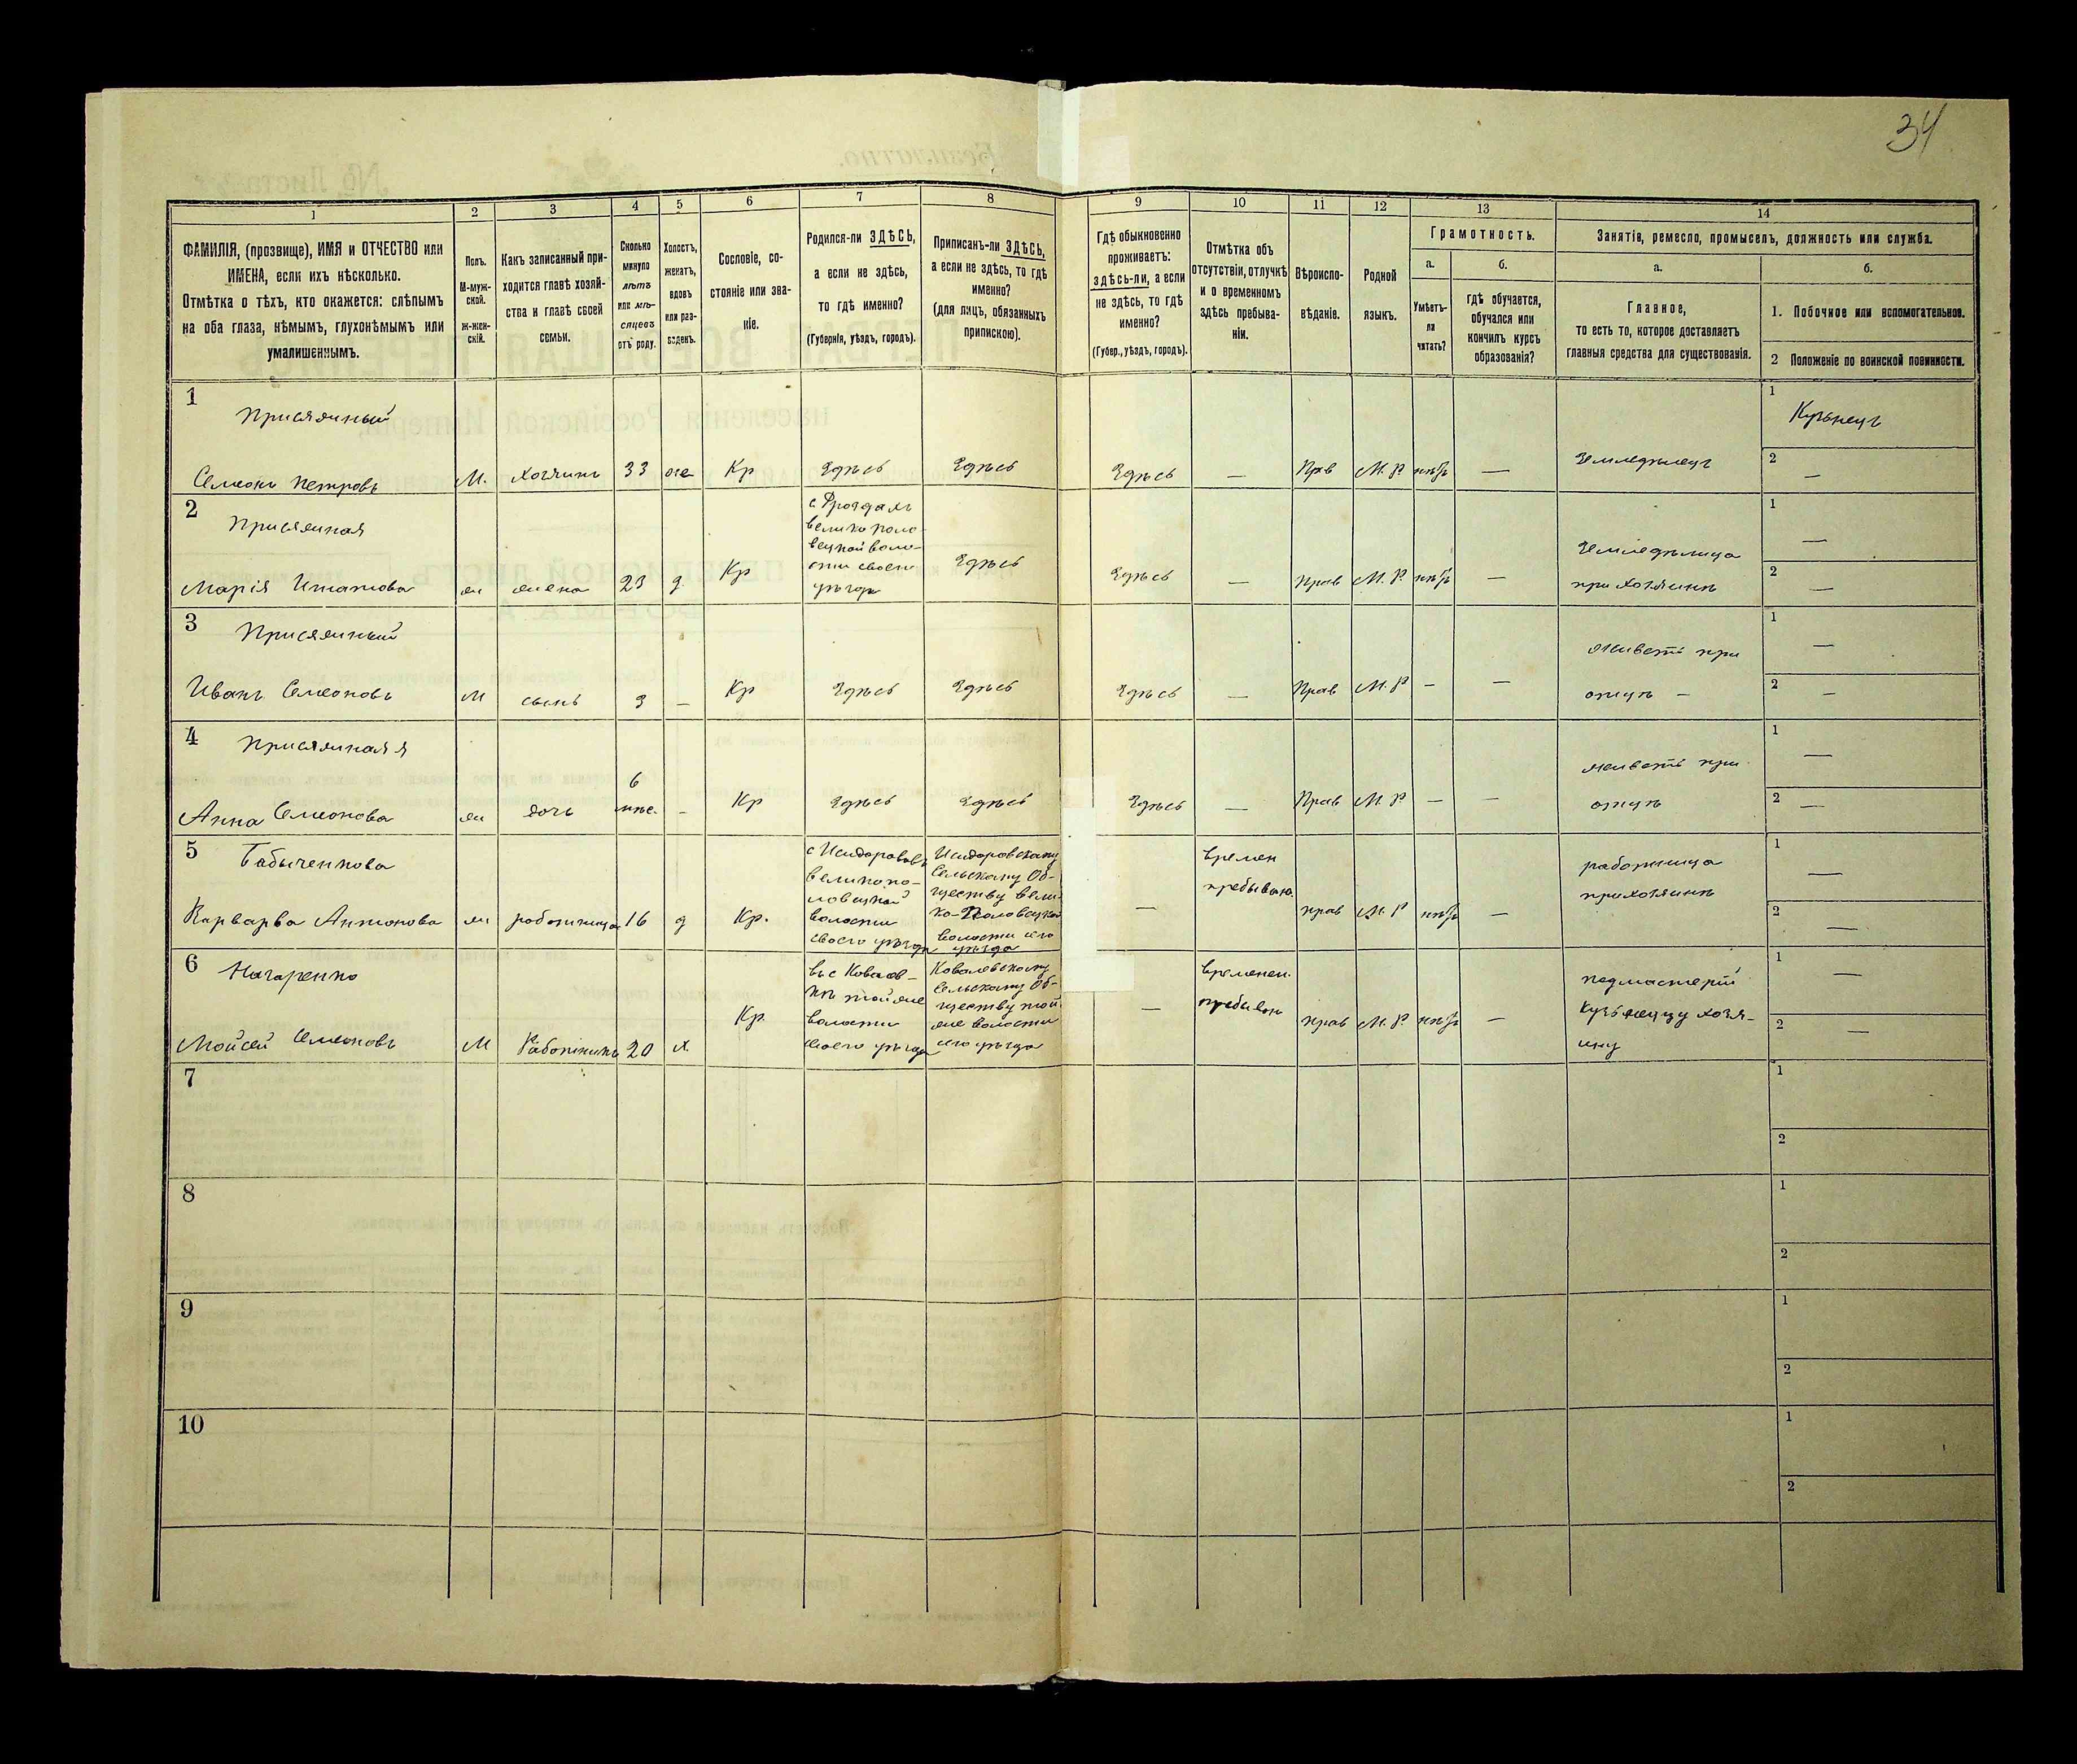 34
1 2 3 4 5 6 7 8 9 10 11 12 13 14
ФАМИЛІЯ, (прозвище), ИМЯ и ОТЧЕСТВО или
ИМЕНА, если ихъ нѣсколько.
Отмѣтка о тѣхъ, кто окажется: слѣпымъ
на оба глаза, нѣмымъ, глухонѣмымъ или
умалишеннымъ.
Полъ.
М-муж-
ской.
Ж-жен-
скій.
Какъ записанный при-
ходится главѣ хозяй-
ства и главѣ своей
семьи.
Сколько
минуло
лѣтъ
или мѣ-
сяцевъ
отъ роду.
Холостъ,
женатъ,
вдовъ
или раз-
веденъ.
Сословіе, со-
стояніе или зва-
ніе.
Родился-ли ЗДѢСЬ,
а если не здѣсь,
то гдѣ именно?
(Губернія, уѣздъ, городъ).
Приписанъ-ли ЗДѢСЬ,
а если не здѣсь, то гдѣ
именно?
(для лицъ, обязанныхъ
припискою).
Гдѣ обыкновенно
проживаетъ:
здѣсь-ли, а если
не здѣсь, то гдѣ
именно?
(Губер., уѣздъ, городъ).
Отмѣтка объ
отсутствіи, отлучкѣ
и о временномъ
здѣсь пребыва-
ніи.
Вѣроиспо-
вѣданіе.
Родной
языкъ.
Грамотность.
а.
Умѣетъ-
ли
читать?
б.
гдѣ обучается,
обучался или
кончилъ курсъ
образованія?
Занятія, ремесло, промыселъ, должность или служба.
а.
Главное,
то есть то, которое доставляетъ
главныя средства для существованія.
б.
1. Побочное или вспомогательное.
2 Положеніе по воинской повинности.
1
Присяжный
Семенъ Петровъ
М.
Хозяинъ
33
же
Кр
Здѣсь
Здѣсь
Здѣсь
—
Прав
М. Р
нѣтъ
—
Земледѣлецъ
1
Кузнецъ
2
—
2
Присяжная
Марія Игнатова
ж
жена
23
з
Кр
с Дроздахъ
велико поло-
вецкой воло-
сти своего
уѣзда
Здѣсь
Здѣсь
—
Прав
М. Р.
нѣтъ
—
Земледѣлица
при хозяинѣ
1
—
2
—
3
Присяжный
Иванъ Семеновъ
М
сынъ
3
—
Кр
Здѣсь
Здѣсь
Здѣсь
—
Прав
М. Р
—
—
живетъ при
отцѣ —
1
—
2
—
4
Присяжная
Анна Семенова
ж
дочь
6
мѣс.
-
Кр
Здѣсь
Здѣсь
Здѣсь
—
Прав
М. Р
—
—
живетъ при
отцѣ
1
—
2
—
5
Бабыченкова
Варварва Антонова
ж
работница
16
д
Кр.
с Исидоровкѣ
великопо-
ловецкой
волости
своего уѣзда
Исидоровскому
Сельскому Об-
ществу вели-
ко-Половецкой
волости сего
уѣзда
—
времен
пребываю.
прав
М. Р
нѣтъ
—
работница
при хозяинѣ
1
—
2
—
6
Назаренко
Мойсей Семеновъ
М
Работникъ
20
х.
Кр.
въ с Ковалев-
кѣ той же
волости
своего уѣзда
Ковалевскому
Сельскому Об-
ществу той
же волости
сего уѣзда
—
временен.
пребыван
прав
М. Р.
нѣтъ
—
подмастерій
Кузнецу хозя-
ину
1
—
2
—
7
1
2
8
1
2
9
1
2
10
1
2